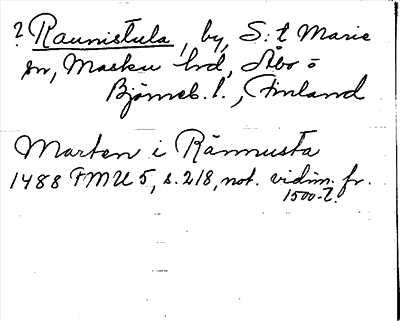 ? Raunistula, by, S:t Marie
sn, Masku hrd, Åbo =
Björneb. l., Finland
Marten i Rännusta
1488 FMU 5, s. 218, not. vidim. fr.
1500-t.